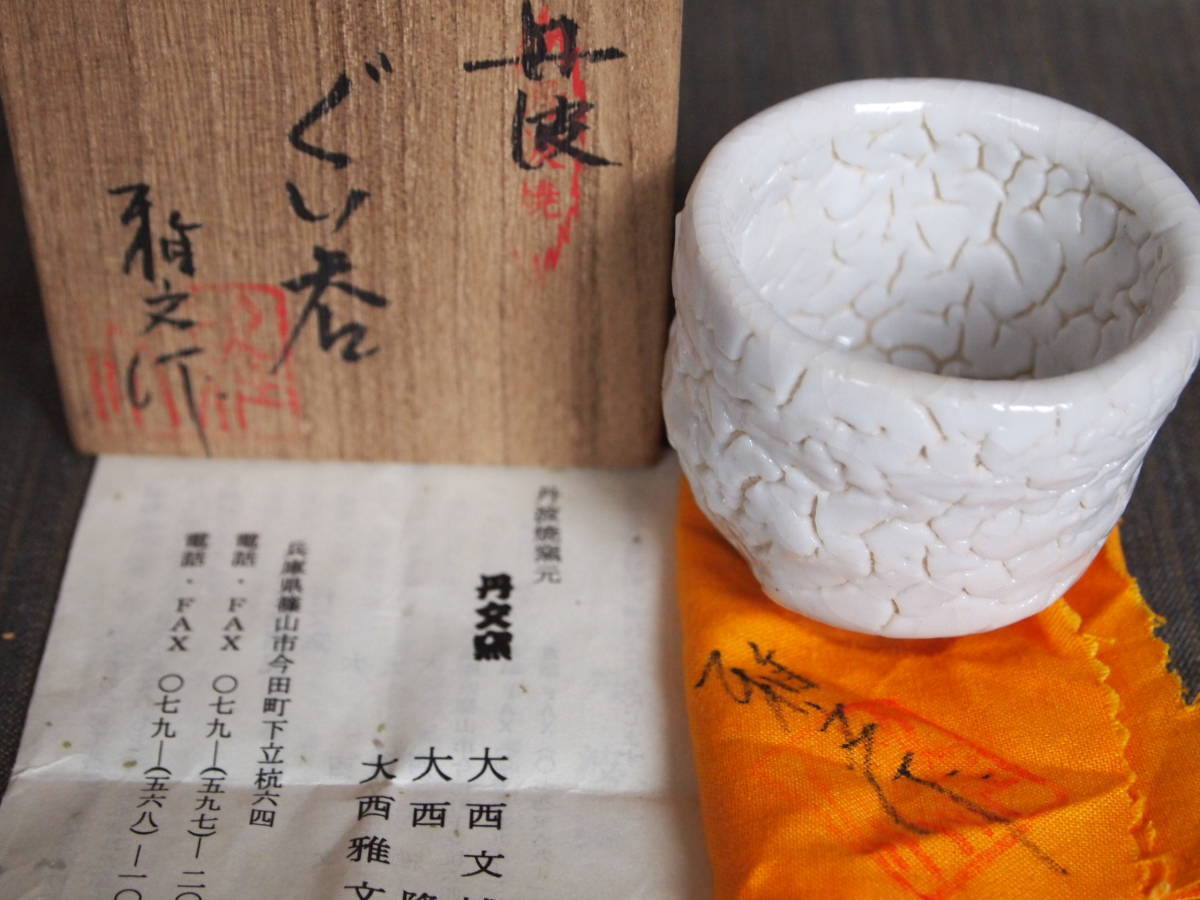 丹波
ぐい呑
雅文作
丹波焼窯元
丹文窯
大西文
大西
大西雅文
兵庫県篠山市今田町下立杭六四
電話・FAX 〇七九―(五九七)―二〇
電話・FAX 〇七九―(五六八)―一〇
雅文作